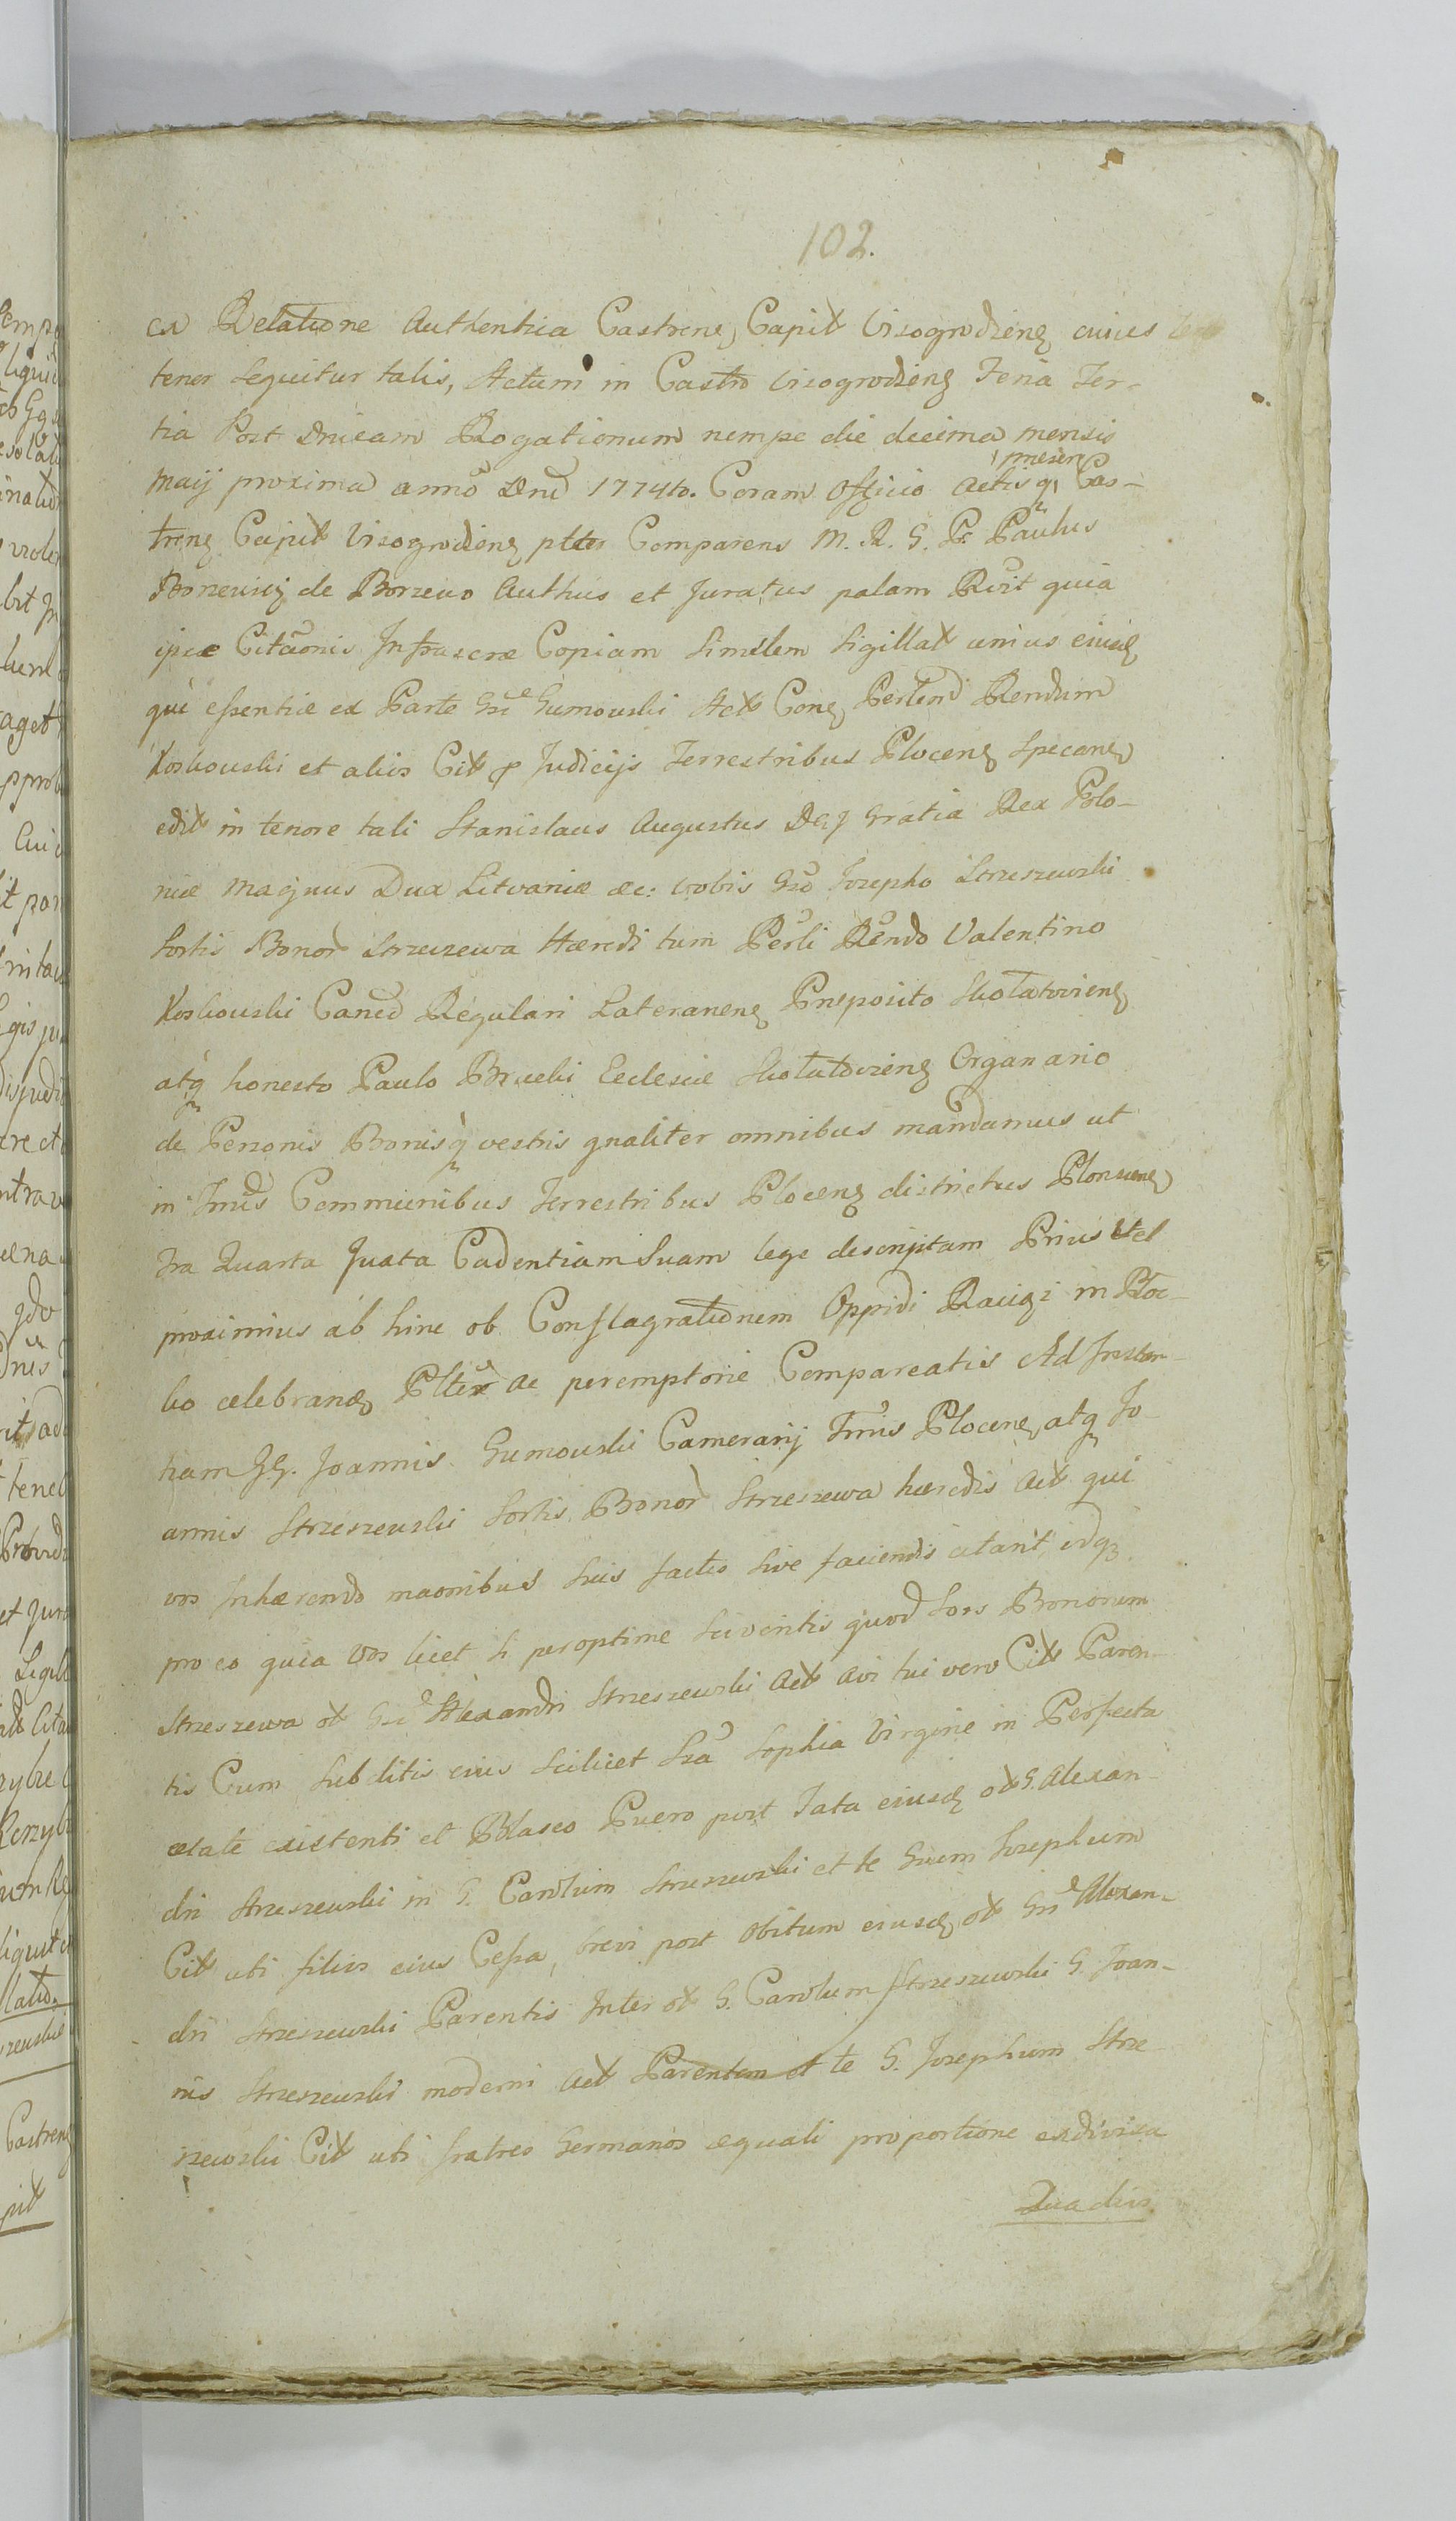 102.
ex Relatione Authentica Castrens Capit Visogrodiens cuius
tenor sequitur talis, Actum in Castro Visogrodiens Feria Ter-
tia Post Dnicam Rogationum nempe die decima mensis
Maij proxima anno Dni 1774to. Coram Officio Actisq, presen Cas-
trens Capit Visogrodiens ptter Comparens M. R. G. P. Paulus
de Borzewo Authus et Juratus palam Rvit quia
ipse Citaonis Infrascrae Copiam Similem Sigillat unius eiusq
qui essentiae ex Parte Gsi Gumowski Act Cons Perlend Rendum
Koskowski et aliis Cit p Judicijs Terrestribus Plocens specane
edit in tenore tali Stanislaus Augustus Dei Gratia Rex Polo-
niae Magnus Dux Litvaniae &c: vobis Gso Josepho Strzeszewski
Sortis Bonor Strzeszewa Haeredi tum Perli Rendo Valentino
Koskowski Canco Regulari Lateranens Praeposito
atq honesto Paulo Ecclesiae Organario
de Personis Bonisq vestris gnaliter omnibus mandamus ut
in Tmis Communibus Terrestribus Plocens districtus Plonscens
Fra Quarta Juxta Cadentiam Suam lege descriptam Prius vel
proximius ab hinc ob Conflagrationem Oppidi Raciąż in Ploc-
ko celebrand Ptter ac peremptorie Compareatis Ad Instan-
tiam GG. Joannis Gumowski Camerarij Tmis Plocens, atq Jo-
annis Strzeszewski Sortis Bonor Strzeszewa haeredis Act qui
vos Inhaerendo maonibus suis factis sive faciendis citant idq
pro eo quia Vos licet si peroptime sciveritis quod Sors Bonorum
Strzeszewa ot Gsi Alexandri Strzeszewski Act Avi tui vero Cit Paren-
tis Cum subditis eius scilicet Sza Sophia Virgine in Perfecta
aetate existenti et Blaseo Puero post Fata eiusd ot G. Alexan-
dri Strzeszewski in G. Carolum Strzeszewski et te Gsum Josephum
Cit uti filios eius Cessa, brevi post Obitum eiusd, ot Gsi Alexan-
dri Strzeszewski Parentis Inter ot G. Carolum Strzeszewski G. Joan-
nis Strzeszewski moderni Act Parentem et te G. Josephum Strze
szewski Cit uti fratres Germanos aequali proportione exdivisa